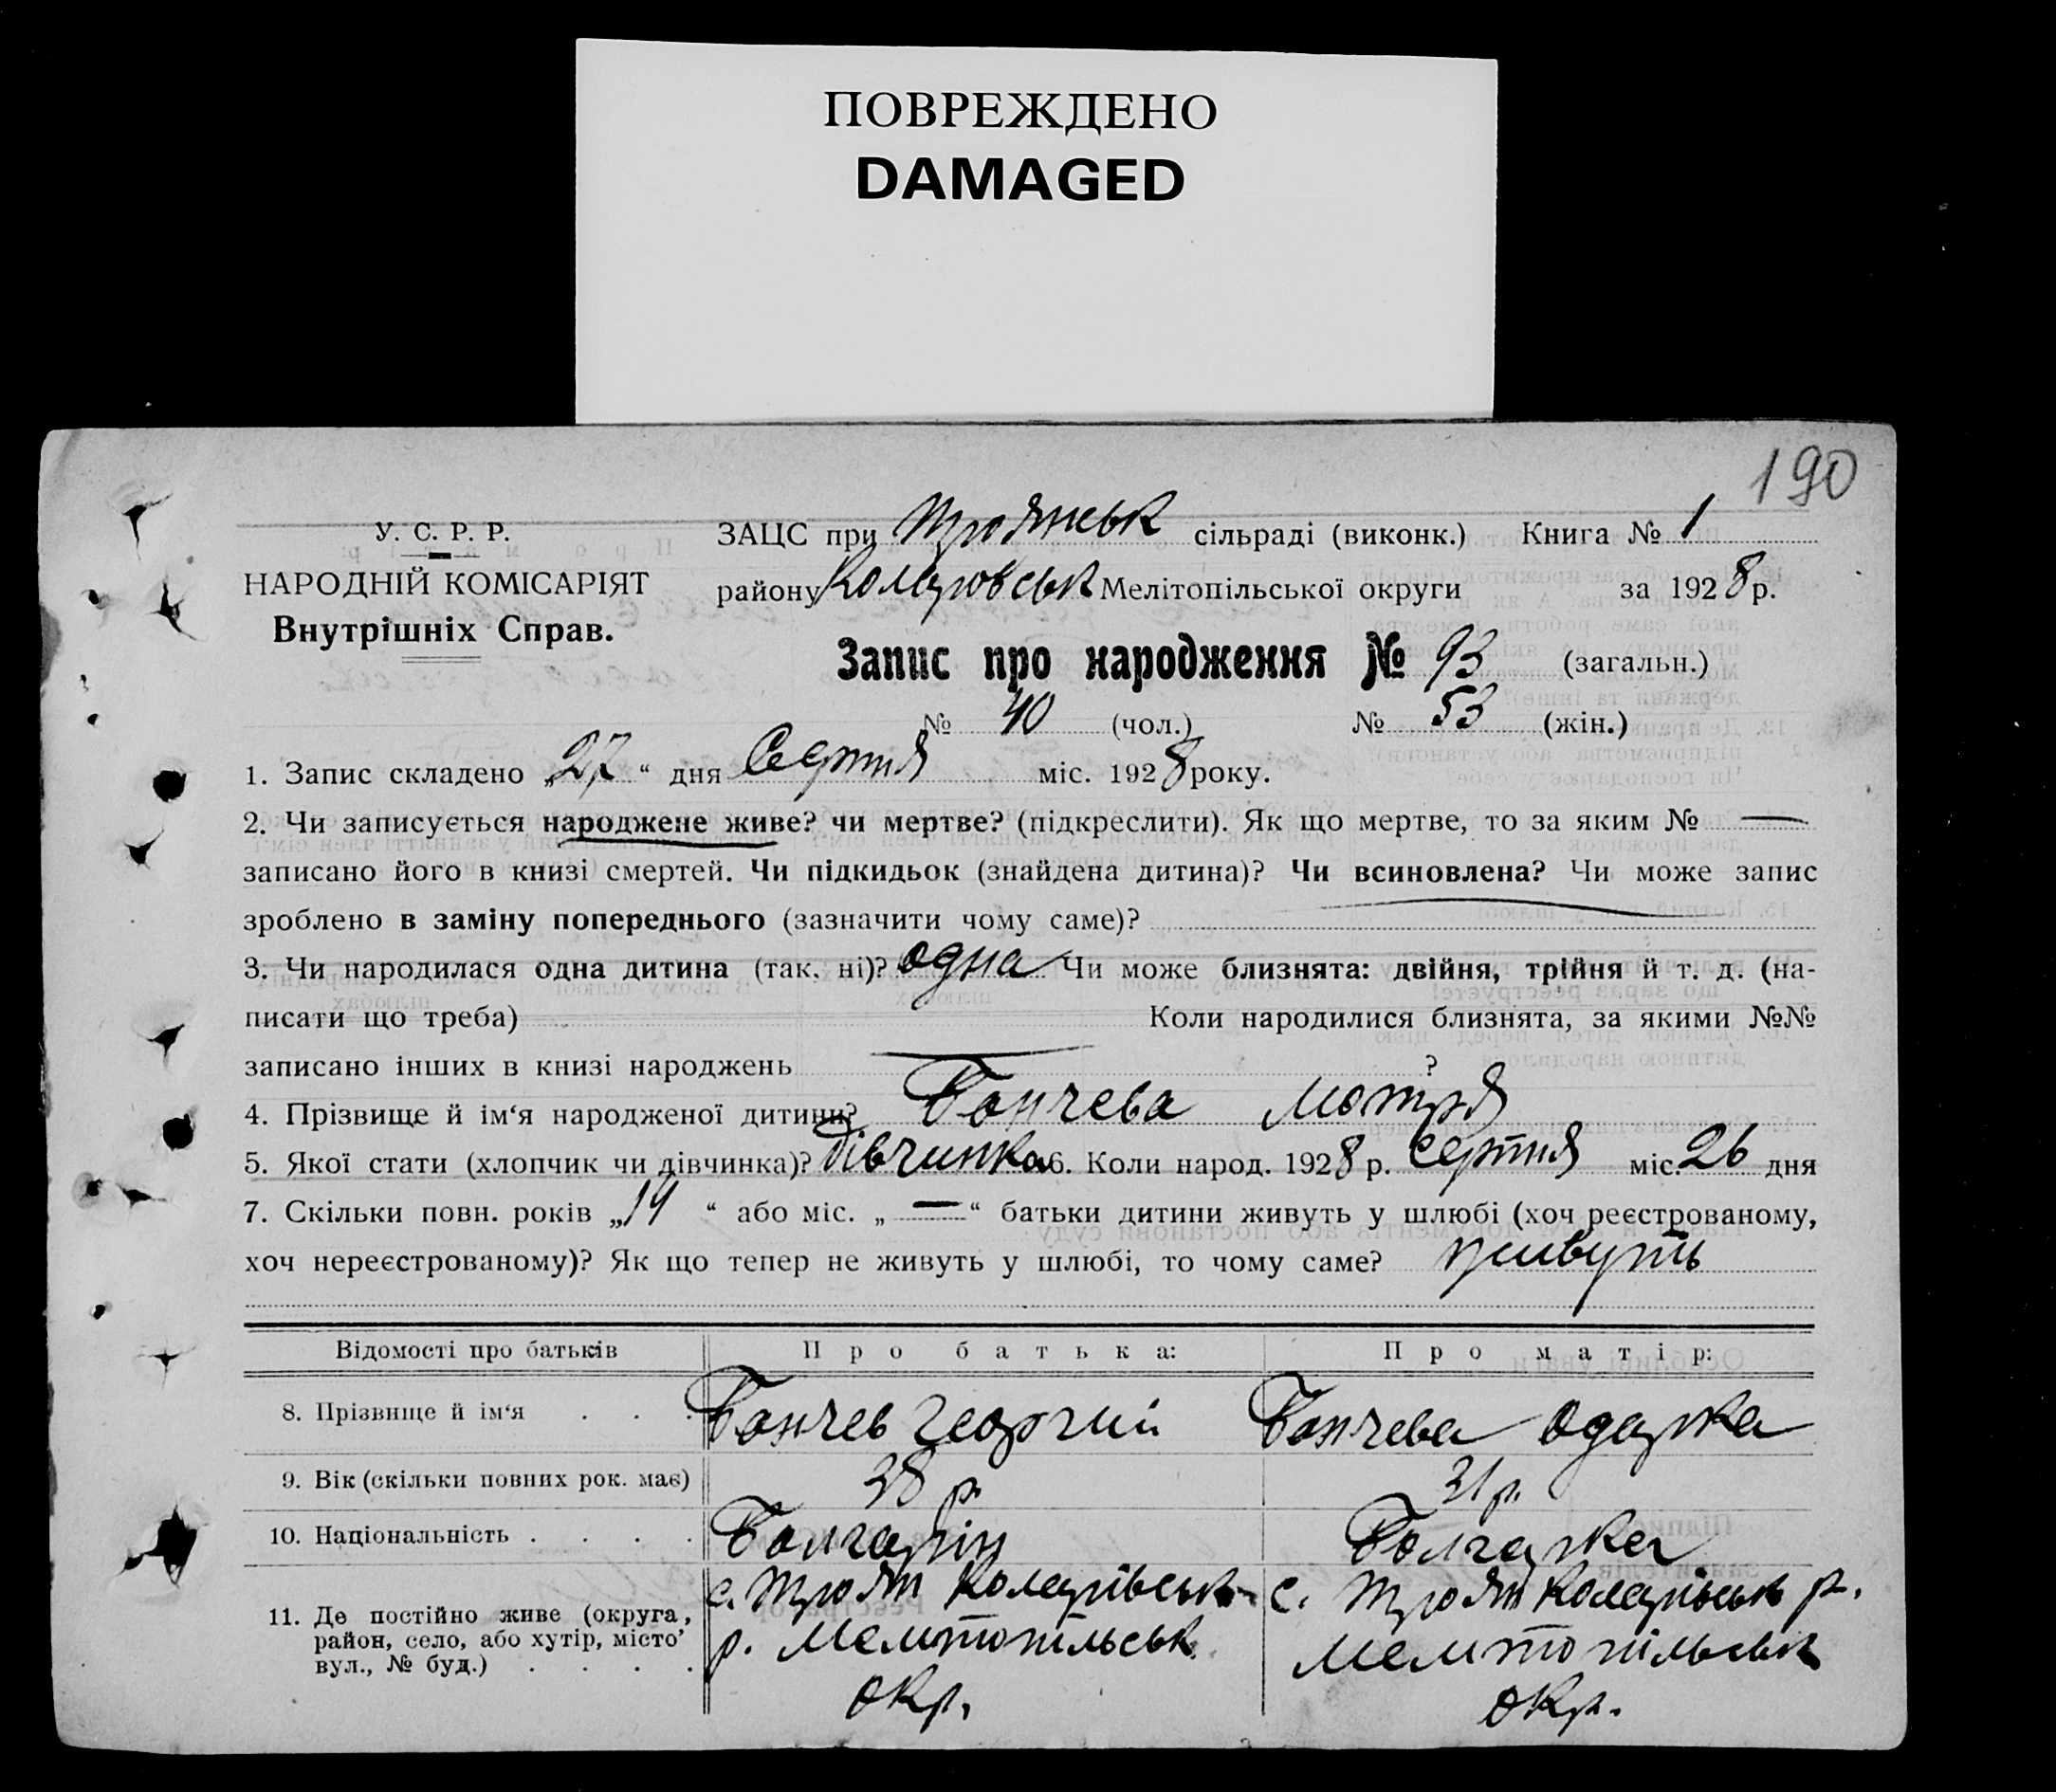 ПОВРЕЖДЕНО
DAMAGED
190
У. С. Р. Р.
НАРОДНІЙ КОМІСАРІЯТ
Внутрішніх Справ.
ЗАЦС при Троянськ сільраді (виконк.) Книга № 1
району Коларовськ Мелітопільської округи за 1928 р.
Запис про народження № 93 (загальн.)
№ 40 (чол.) № 53 (жін.)
1. Запис складено „27“ дня Серпня міс. 1928 року.
2. Чи записується народжене живе? чи мертве? (підкреслити). Як що мертве, то за яким № —
записано його в книзі смертей. Чи підкидьок (знайдена дитина)? Чи всиновлена? Чи може запис
зроблено в заміну попереднього (зазначити чому саме)?
3. Чи народилася одна дитина (так, ні)? одна Чи може близнята: двійня, трійня й т. д. (на-
писати що треба) Коли народилися близнята, за якими №№
записано інших в книзі народжень — ?
4. Прізвище й ім‘я народженої дитини? Бончева Мотря
5. Якої стати (хлопчик чи дівчинка)? дівчинка 6. Коли народ. 1928 р. серпня міс. 26 дня
7. Скільки повн. років „14“ або міс. „—“ батьки дитини живуть у шлюбі (хоч реєстрованому,
хоч нереєстрованому)? Як що тепер не живуть у шлюбі, то чому саме? живуть
Відомості про батьків Про батька: Про матір:
8. Прізвище й ім‘я . . . Бончев Георгий Бончева Одарка
9. Вік (скільки повних рок. має) 38 р. 31 р.
10. Національність . . . . Болгарін Болгарка
11. Де постійно живе (округа, район, село, або хутір, місто, вул., № буд.) . . . .
с. Троян Коларівськ
р. Мелитопільськ
окр.
с. Троян Коларівськ р.
Мелитопільськ
окр.